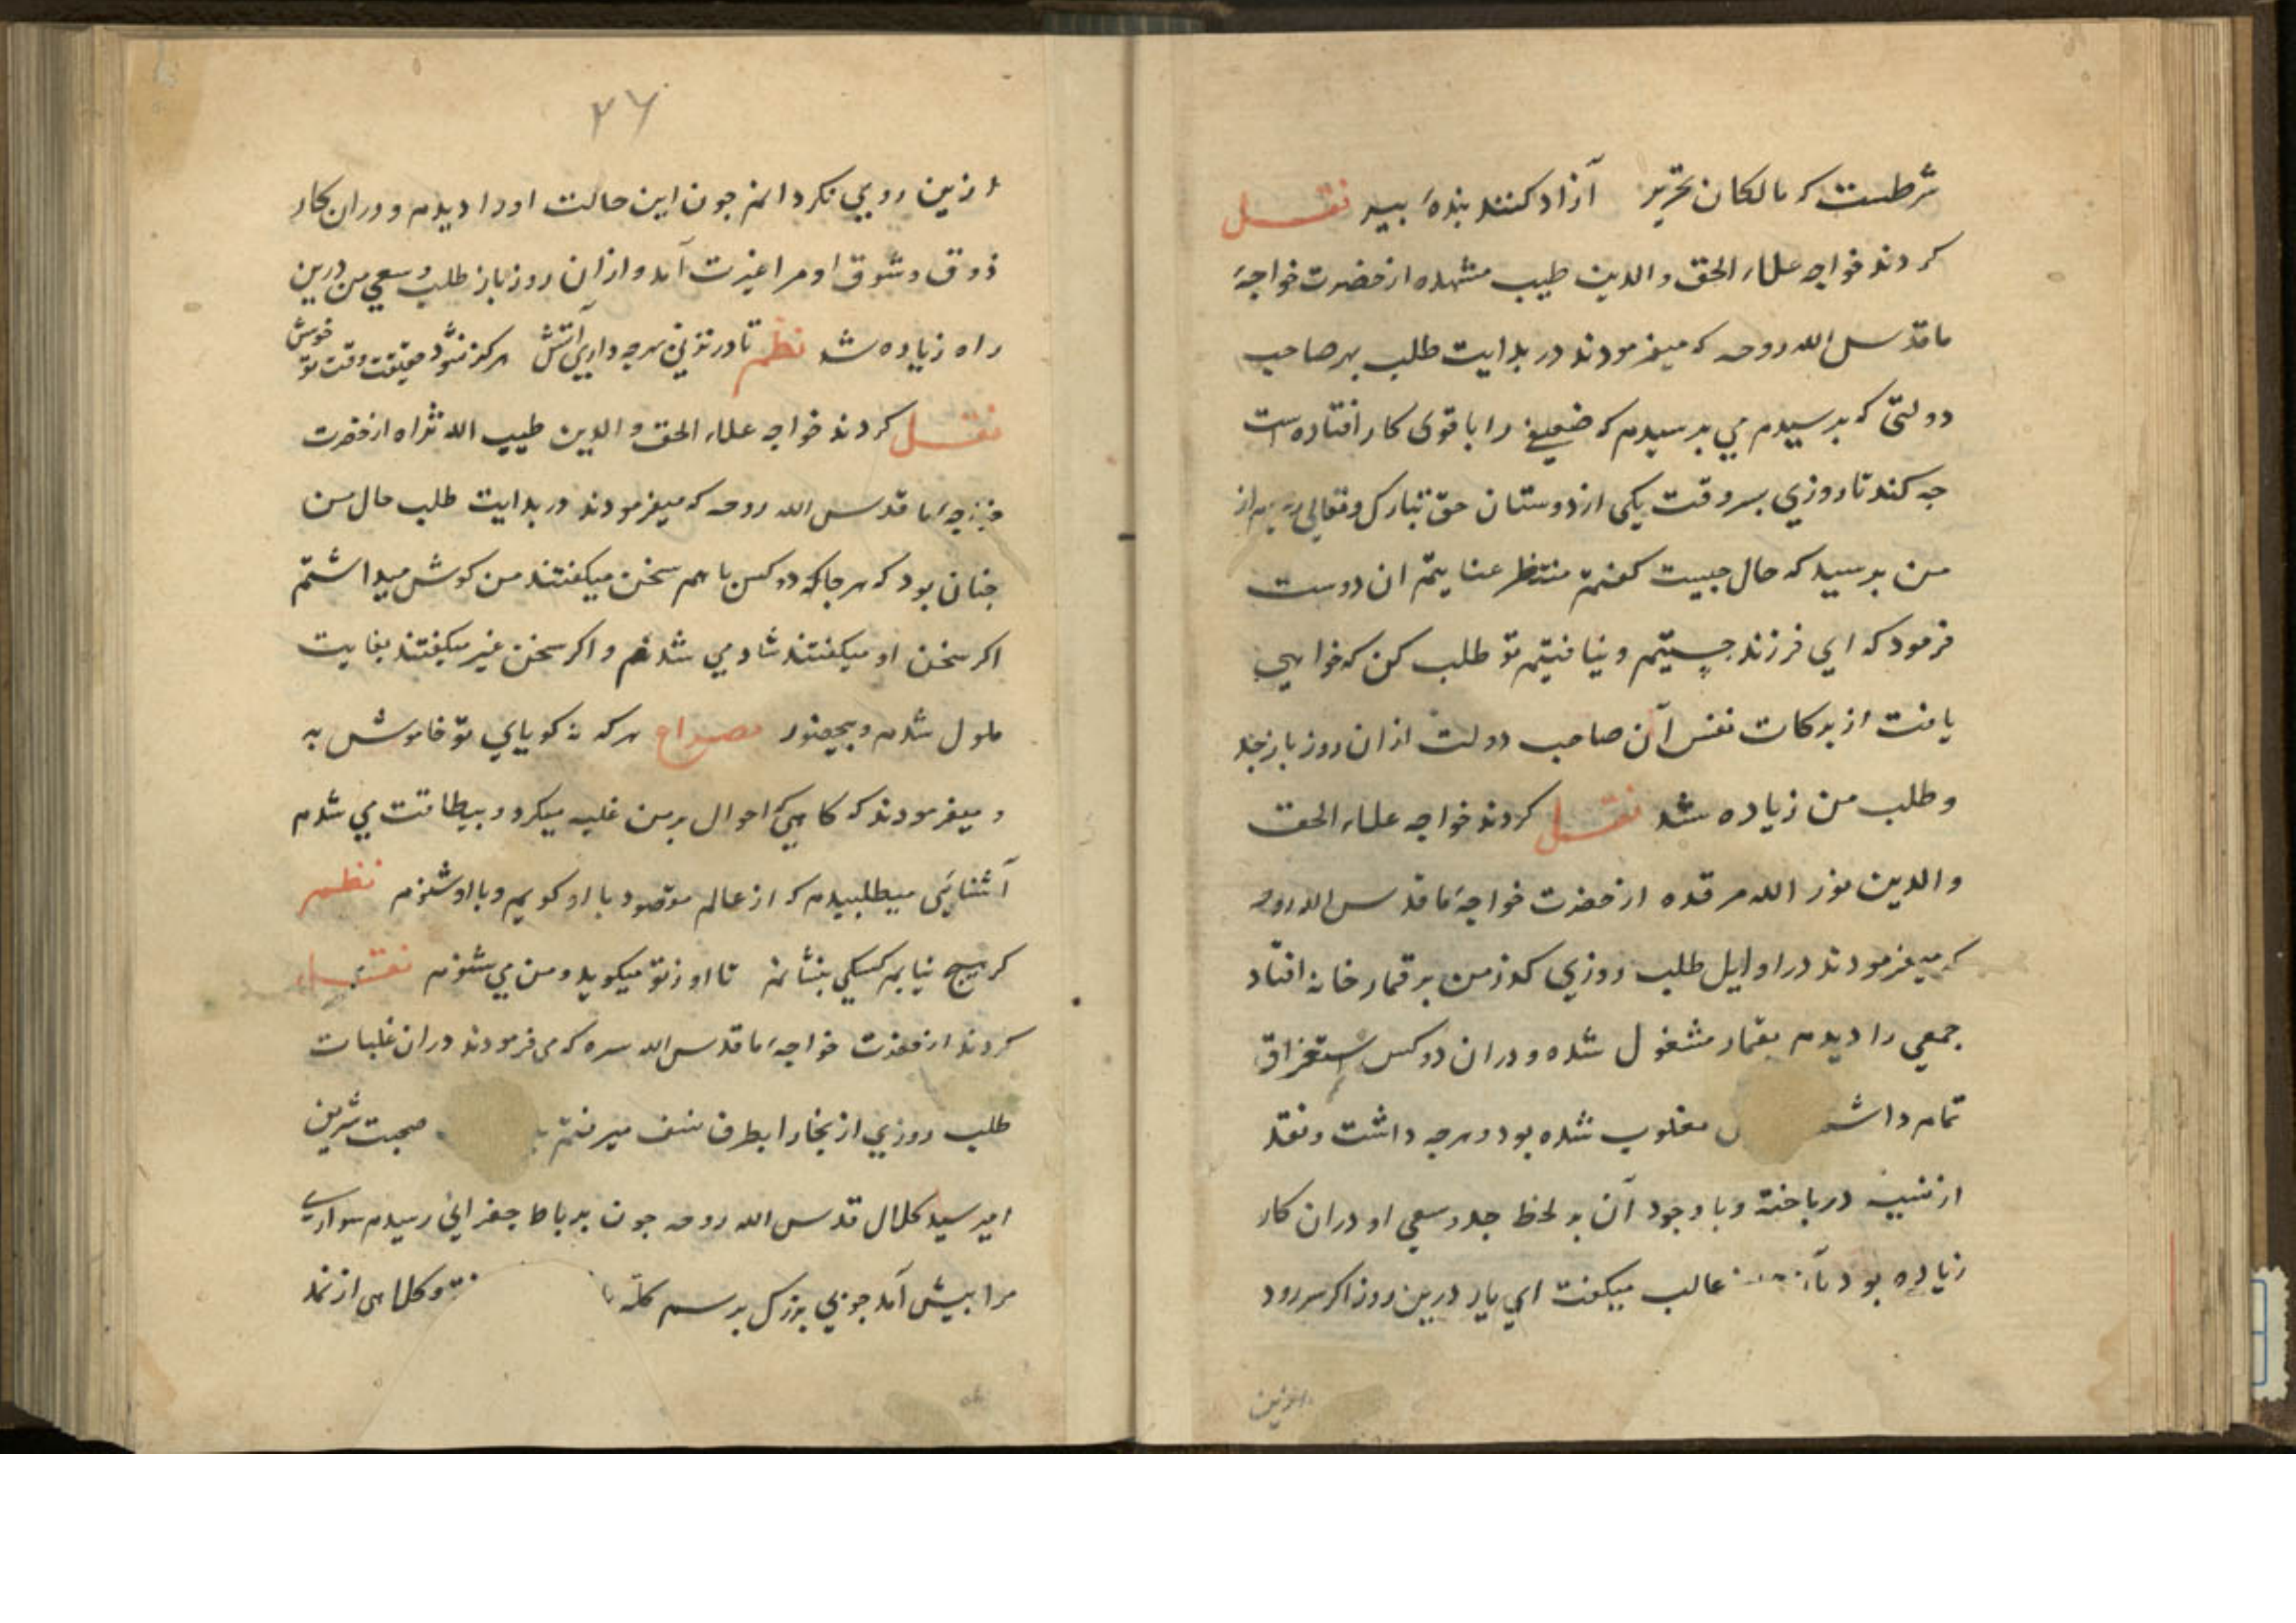 شرطست که مالکان تحریر آزاد کنند بندهٔ پیر نقل
کردند خواجه علاء الحق والدین طیب مشهده از حضرت خواجهٔ
ما قدس الله روحه که میفرمودند در بدایت طلب بهر صاحب
دولتی که برسیدم می برسیدم که ضعیفی را با قوی کار افتاده است
جه کند تا روزی بسر وقت یکی از دوستان حق تبارک وتعالی از
من برسید که حال جیست کفتم منتظر عنایتم ان دوست
فرمود که ای فرزند جستیم ونیافتیم تو طلب کن که خواهی
یافت از برکات نفس آن صاحب دولت ازان روز باز جد
وطلب من زیاده شد نقل کردند خواجه علاء الحق
والدین نور الله مرقده از حضرت خواجهٔ ما قدس الله روحه
که میفرمودند در اوایل طلب روزی کذر من بر قمارخانه افتاد
جمعی را دیدم بقمار مشغول شده ودران دو کس استغراق
تمام داشتـ مغلوب شده بود وهرجه داشت ونقد
از نسیه درباخته وباوجود آن بهر لحظ جد وسعی او دران کار
زیاده بود غالب میکفت ای یار درین روز اکر سر رود
ازین
۲۶
ازین روی نکردانم جون این حالت اورا دیدم ودران کار
ذوق وشوق او مرا غیرت آمد وازان روز باز طلب وسعی من درین
راه زیاده شد نظم تا در نزنی بهرجه داری آتش هرکز نشود حقیقت وقت تو خوش
نقل کردند خواجه علاء الحق والدین طیب الله ثراه از حضرت
خواجهٔ ما قدس الله روحه که میفرمودند در بدایت طلب حال من
جنان بود که هرجا که دو کس باهم سخن میکفتند من کوش میداشتم
اکر سخن او میکفتند شاد می شدم واکر سخن غیر میکفتند بغایت
ملول شدم وبیحضور مصراع هرکه نه کویای تو خاموش به
ومیفرمودند که کاهی که احوال بر من غلبه میکرد وبیطاقت می شدم
آشنایی میطلبیدم که از عالم مقصود با او کویم وبا او شنوم نظم
کر هیچ نیابم کسکی بنشانم تا او ز تو میکوید ومن می شنوم نقل
کردند از حضرت خواجهٔ ما قدس الله سره که می فرمودند دران غلبات
طلب روزی از بخارا بطرف نسف میرفتم صحبت شریف
امیر سید کلال قدس الله روحه جون برباط جغراتی رسیدم سواری
مرا بیش آمد جوبی بزرک برسم کله وکلاهی از نمد